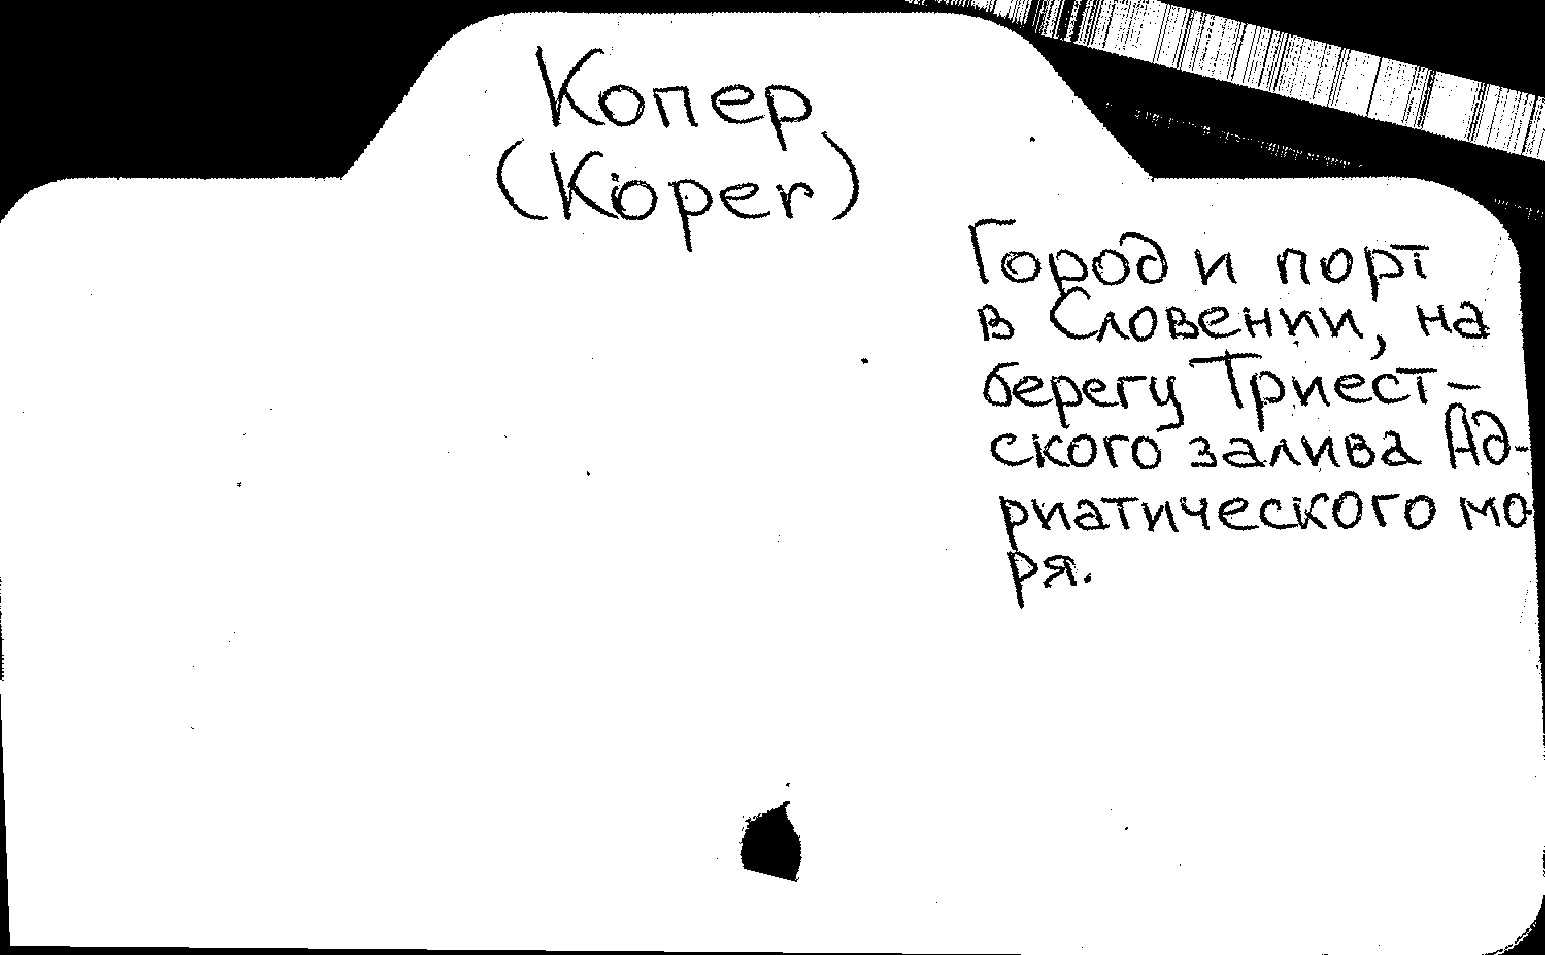 Копер
(Koper)
Город и порт
в Словении, на
берегу Триест-
ского залива Ад-
риатического мо-
ря.